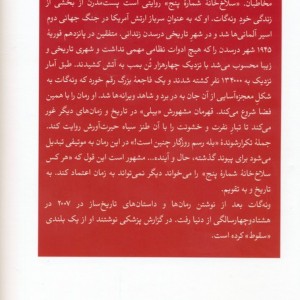 مخاطبان. «سلاخ‌خانهٔ شمارهٔ پنج» روایتی است پست‌مدرن از بخشی از
زندگی خودِ ونه‌گات. او که به عنوانِ سربازِ ارتش آمریکا در جنگ جهانی دوم
اسیر آلمانی‌ها شد و در شهر تاریخی درسدن زندانی. متفقین در پانزدهم فوریهٔ
۱۹۴۵ شهر درسدن را که هیچ ادوات نظامی مهمی نداشت و شهری تاریخی و
زیبا محسوب می‌شد با نزدیک چهارهزار تُن بمب به آتش کشیدند. طبق آمار
نزدیک به ۱۳۴۰۰۰ نفر کشته شدند و یک فاجعهٔ بزرگ رقم خورد که ونه‌گات به
شکلِ معجزه‌آسایی از آن جان به در برد و شاهد ویرانه‌ها شد. او رمان را با همین
فضا شروع می‌کند. قهرمان مشهورش «بیلی» در تاریخ و زمان‌های دیگر غور
می‌کند تا تبارِ نفرت و خشونت را با آن طنز سیاه حیرت‌آورش روایت کند.
جملهٔ تکرارشوندهٔ «بله رسم روزگار چنین است!» در این رمان به موتیفی تبدیل
می‌شود برای پیوند گذشته، حال و آینده... مشهور است این قول که «هر کس
سلاخ‌خانهٔ شمارهٔ پنج» را می‌خواند دیگر نمی‌تواند به زمان اعتماد کند. به
تاریخ و به تقویم.
ونه‌گات بعد از نوشتن رمان‌ها و داستان‌های تاریخ‌ساز در ۲۰۰۷ در
هشتادوچهارسالگی از دنیا رفت. در گزارش پزشکی نوشتند او از یک بلندی
«سقوط» کرده است.